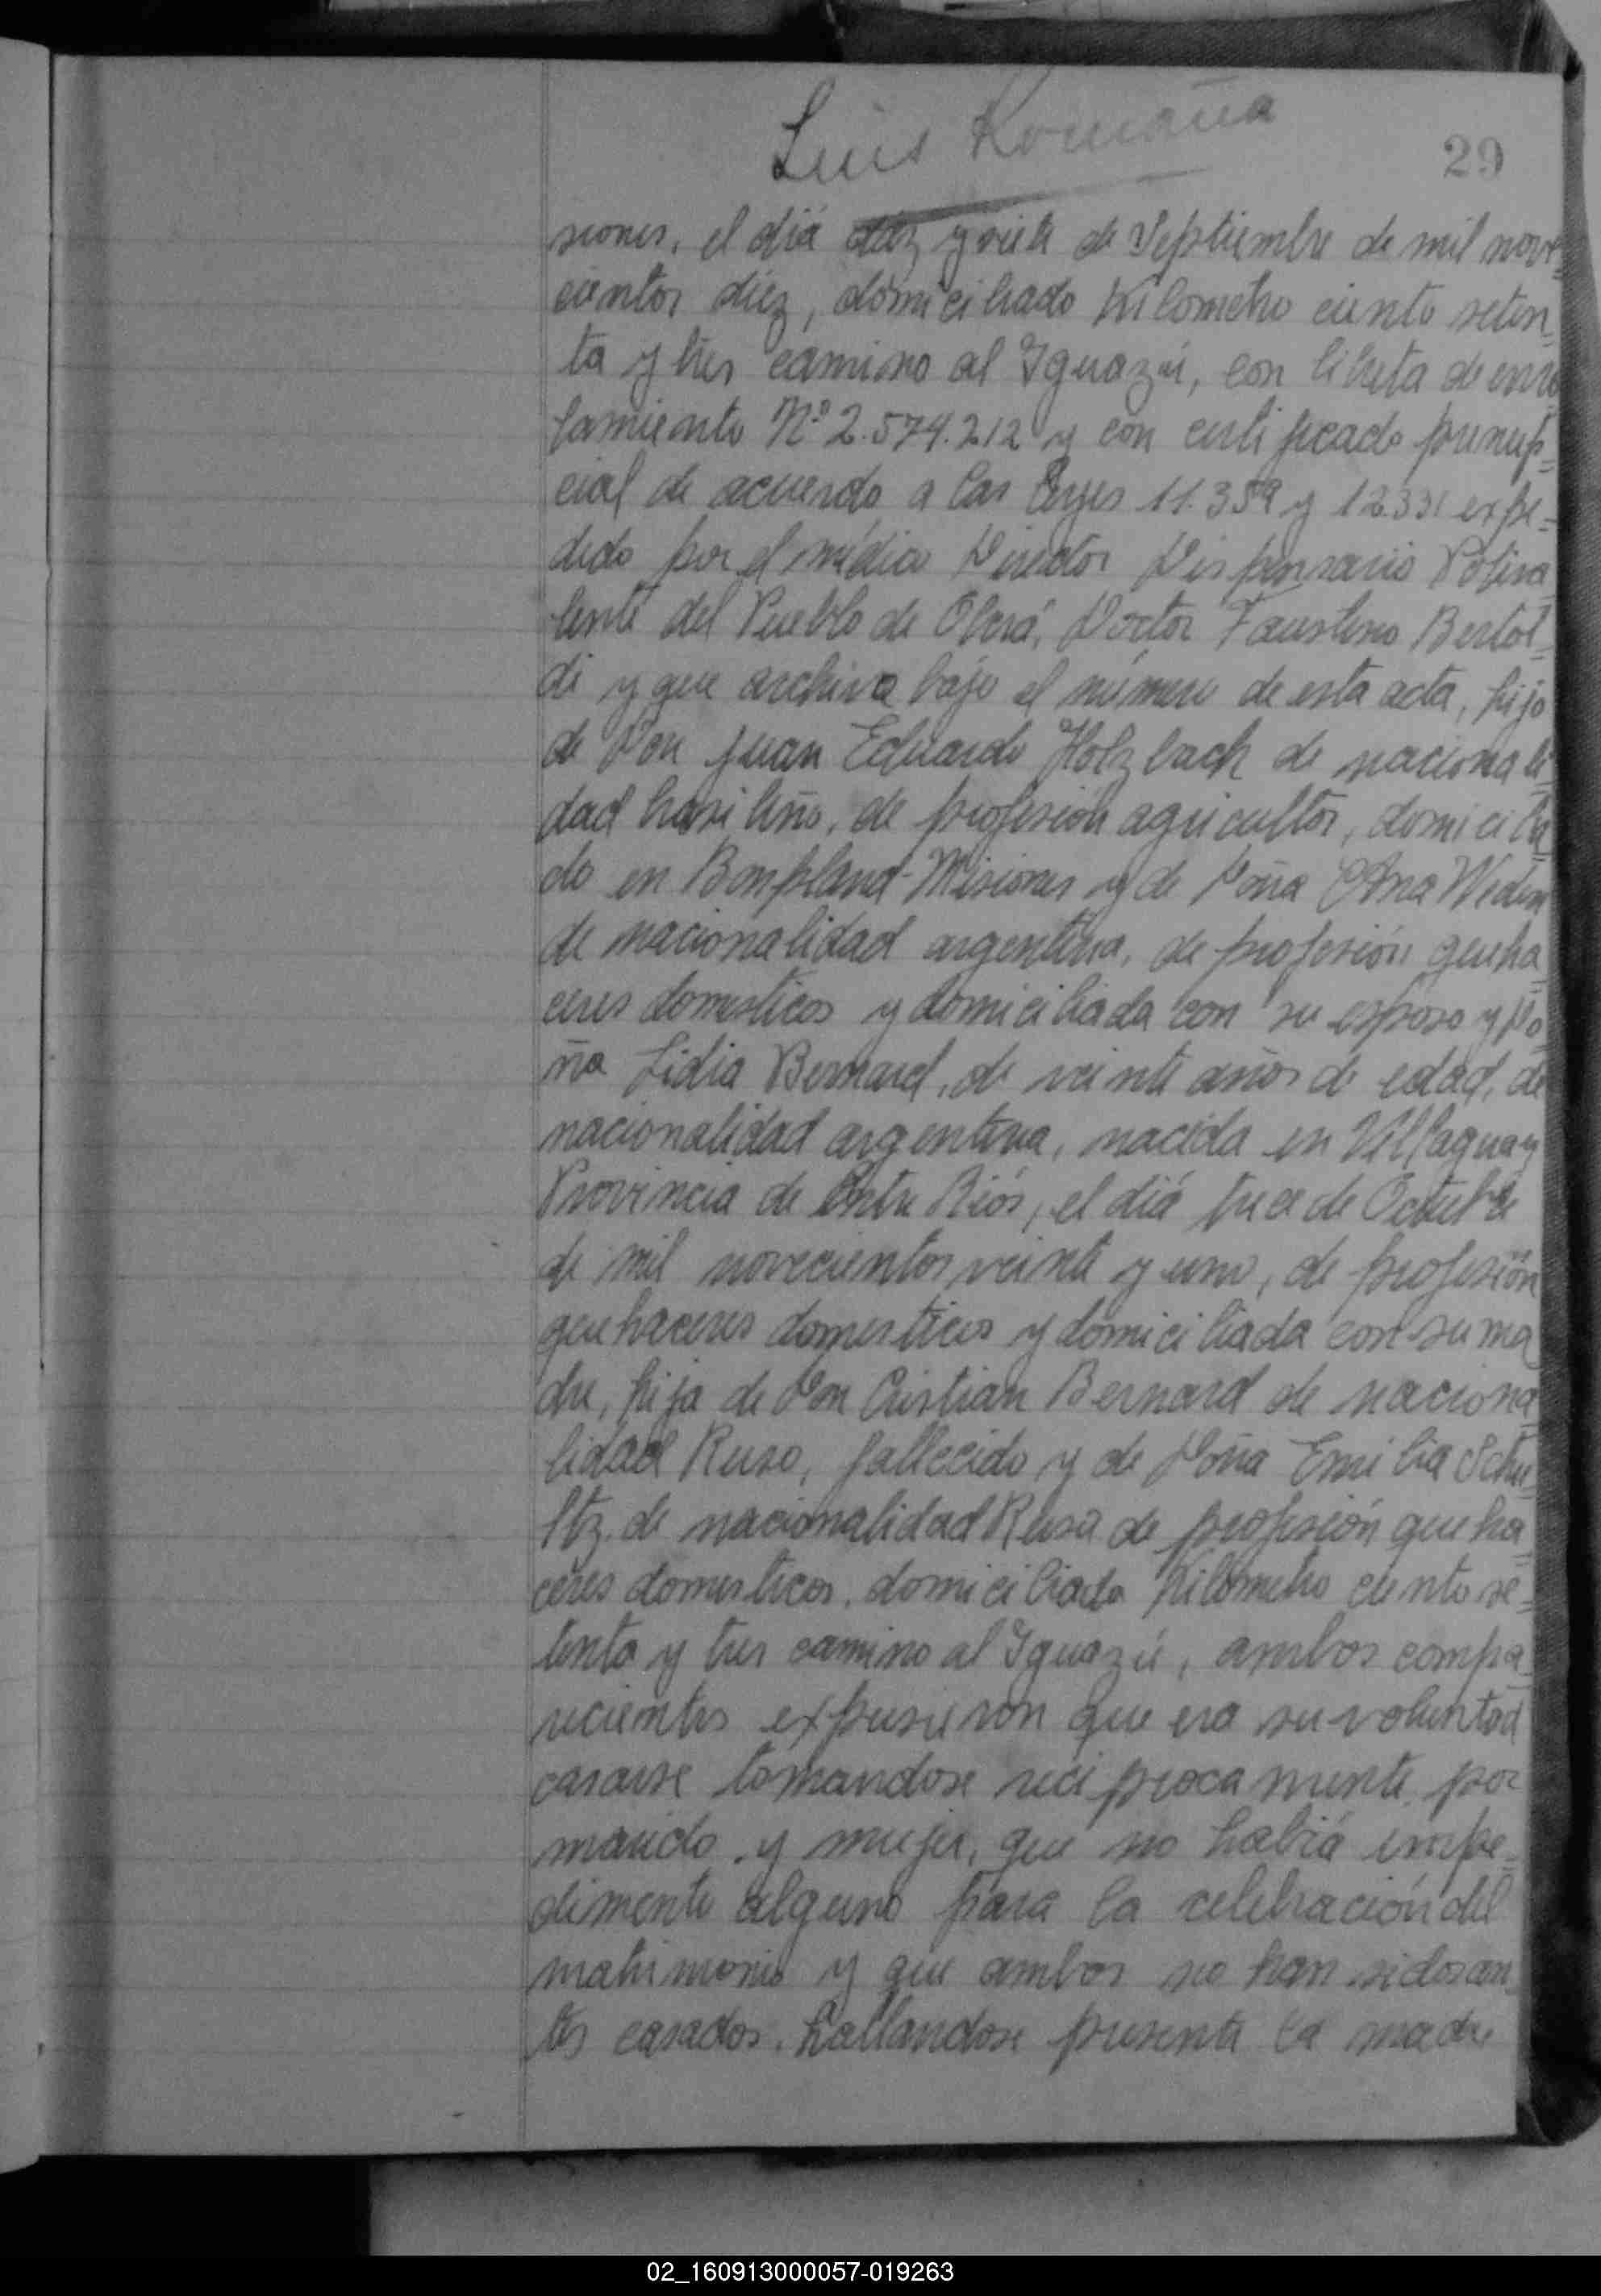 Luis Romaña
29
siones, el diá diez y siete de Septiembre de mil nove=
cientos diez, domiciliado Kilometro ciento seten=
ta y tres camino al Iguazú, con libreta de enro
lamiento Nº 2.574.212 y con certificado prenup=
cial de acuerdo a las leyes 11.359 y 12331 expe=
dido por el médico Director Dispensario Poliva
lente del Pueblo de Oberá, Doctor Faustino Bertol=
di y que archiva bajo el número de esta acta, hijo
de Don Juan Eduardo Holzbach de nacionali=
dad brasileño, de profesión agricultor, domicilia=
do en Bonpland-Misiones y de Doña Ana
de nacionalidad argentina, de profesión queha=
ceres domesticos y domiciliada con su esposo y Do=
ña Lidia Bernard, de veinte años de edad, de
nacionalidad argentina, nacida en Villaguay
Provincia de Entre Riós, el diá trece de Octubre
de mil novecientos veinte y uno, de profesión
quehaceres domesticos y domiciliada con su ma
dre, hija de Don Cristian Bernard de naciona=
lidad Ruso, fallecido y de Doña Emilia Schu=
ltz de nacionalidad Rusa de profesión queha=
ceres domesticos, domiciliada Kilometro ciento se=
tenta y tres camino al Iguazú, ambos compa=
recientes expusieron que era su voluntad
casarse tomandose reciprocamente por
marido y mujer, que no habiá impe=
dimento alguno para la celebración del
matrimonio y que ambos no han sidos an=
tes casados, hallandose presente la madre
02_160913000057-019263